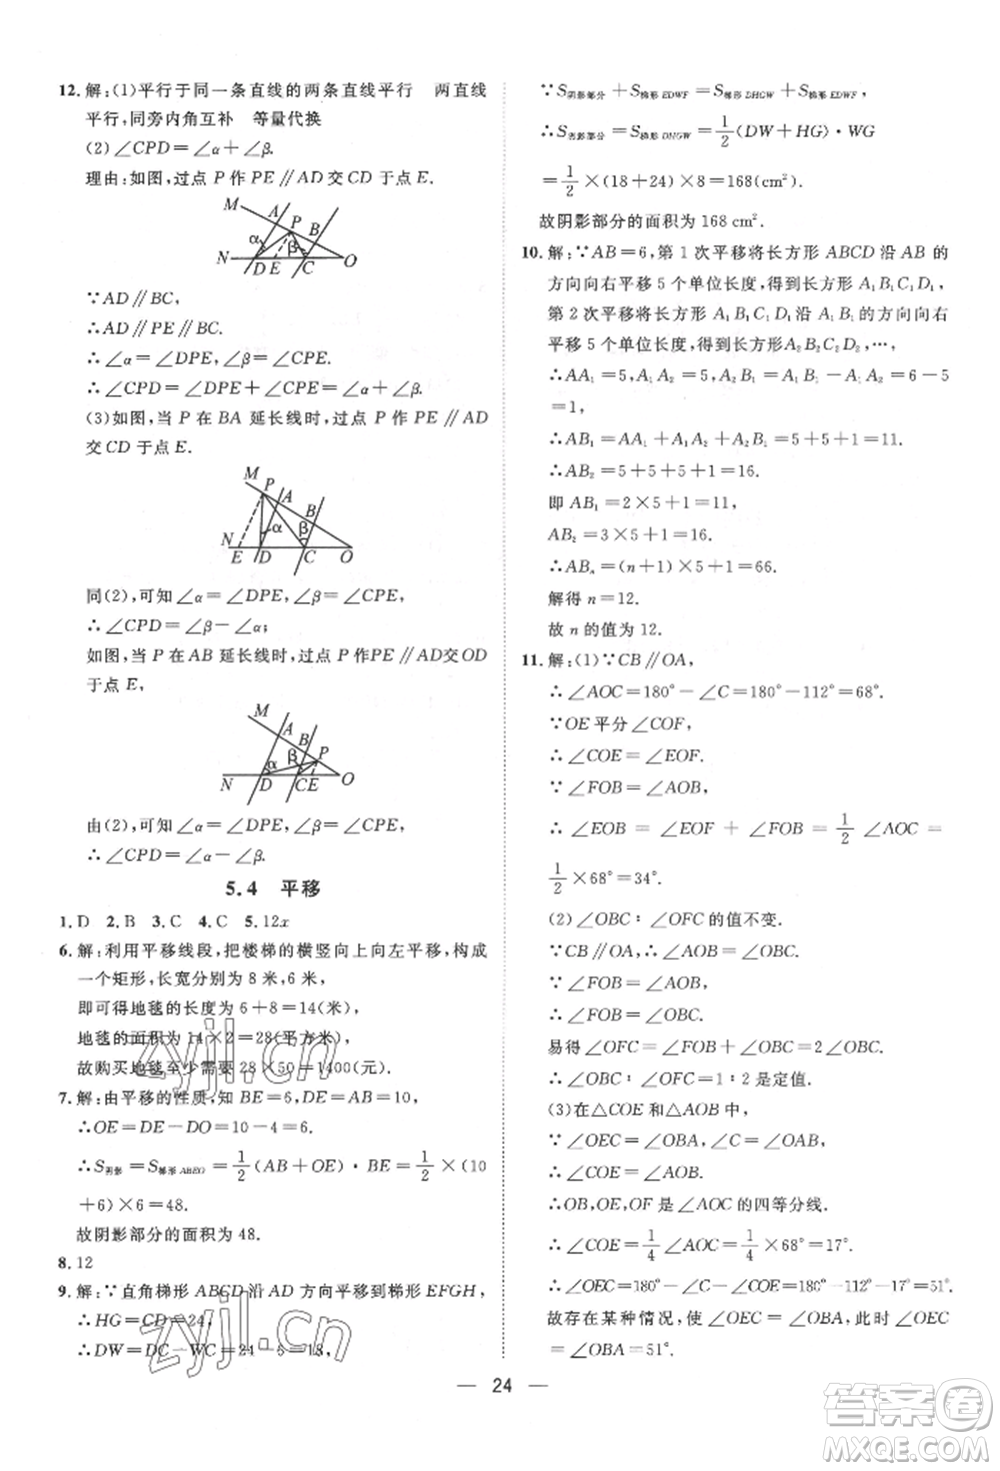 12. 解:(1)平行于同一条直线的两条直线平行　两直线
平行,同旁内角互补　等量代换
(2)∠CPD=∠α+∠β.
理由:如图,过点 P 作 PE∥AD交 CD 于点 E.
M A P B α β N D E C O
∵AD∥BC,
∴AD∥PE∥BC.
∴∠α=∠DPE,∠β=∠CPE.
∴∠CPD=∠DPE+∠CPE=∠α+∠β.
(3)如图,当 P 在 BA 延长线时,过点 P 作 PE∥AD
交 CD 于点 E.
M P A B α β N E D C O
同(2),可知∠α=∠DPE,∠β=∠CPE.
∴∠CPD=∠β-∠α;
如图,当 P 在 AB 延长线时,过点 P 作 PE∥AD交 OD
于点 E,
M A B P α β N D C E O
由(2),可知∠α=∠DPE,∠β=∠CPE.
∴∠CPD=∠α-∠β.
5.4　平移
1. D　2. B　3. C　4. C　5. 12x
6. 解:利用平移线段,把楼梯的横竖向上向左平移,构成
一个矩形,长宽分别为 8 米,6 米.
即可得地毯的长度为 6+8=14(米),
地毯的面积为 14×2=28(平方米),
故购买地毯至少需要 28×50=1400(元).
7. 解:由平移的性质,知 BE=6,AB=DE=10,
∴OE=DE-DO=10-4=6.
∴S阴影=S梯形ABEO=1/2(AB+OE)·BE=1/2×(10
+6)×6=48.
故阴影部分的面积为 48.
8. 12
9. 解:∵直角梯形 ABCD沿 AD 方向平移到梯形 EFGH,
∴HG=CD=24,
∴DW=DC-WC=24-6=18,
∵S阴影部分+S梯形EDWF=S梯形DHGW+S梯形EDWF,
∴S阴影部分=S梯形DHGW=1/2(DW+HG)·WG
=1/2×(18+24)×8=168(cm²).
故阴影部分的面积为 168 cm².
10. 解:∵AB=6,第 1 次平移将长方形 ABCD 沿 AB 的
方向向右平移 5 个单位长度,得到长方形 A₁B₁C₁D₁,
第 2 次平移将长方形 A₁B₁C₁D₁ 沿 A₁B₁ 的方向向右
平移 5 个单位长度,得到长方形 A₂B₂C₂D₂,…,
∴AA₁=5,A₁A₂=5,A₂B₁=A₁B₁-A₁A₂=6-5
=1,
∴AB₁=AA₁+A₁A₂+A₂B₁=5+5+1=11.
∴AB₂=5+5+5+1=16.
即 AB₁=2×5+1=11,
AB₂=3×5+1=16.
∴ABₙ=(n+1)×5+1=66.
解得 n=12.
故 n 的值为 12.
11. 解:(1)∵CB∥OA,
∴∠AOC=180°-∠C=180°-112°=68°.
∵OE平分∠COF,
∴∠COE=∠EOF.
∵∠FOB=∠AOB,
∴∠EOB=∠EOF+∠FOB=1/2∠AOC=
1/2×68°=34°.
(2)∠OBC∶∠OFC 的值不变.
∵CB∥OA,∴∠OBC=∠AOB.
∵∠FOB=∠AOB,
∴∠FOB=∠OBC.
易得∠OFC=∠FOB+∠OBC=2∠OBC.
∴∠OBC∶∠OFC=1∶2 是定值.
(3)在△COE和△AOB中,
∵∠OEC=∠OBA,∠C=∠OAB,
∴∠COE=∠AOB.
∴OB,OE,OF是∠AOC的四等分线.
∴∠COE=1/4∠AOC=1/4×68°=17°.
∴∠OEC=180°-∠C-∠COE=180°-112°-17°=51°.
故存在某种情况,使∠OEC=∠OBA,此时∠OEC=
∠OBA=51°.
— 24 —
zyjl.cn
zyjl.cn
答案圈
MXQE.COM